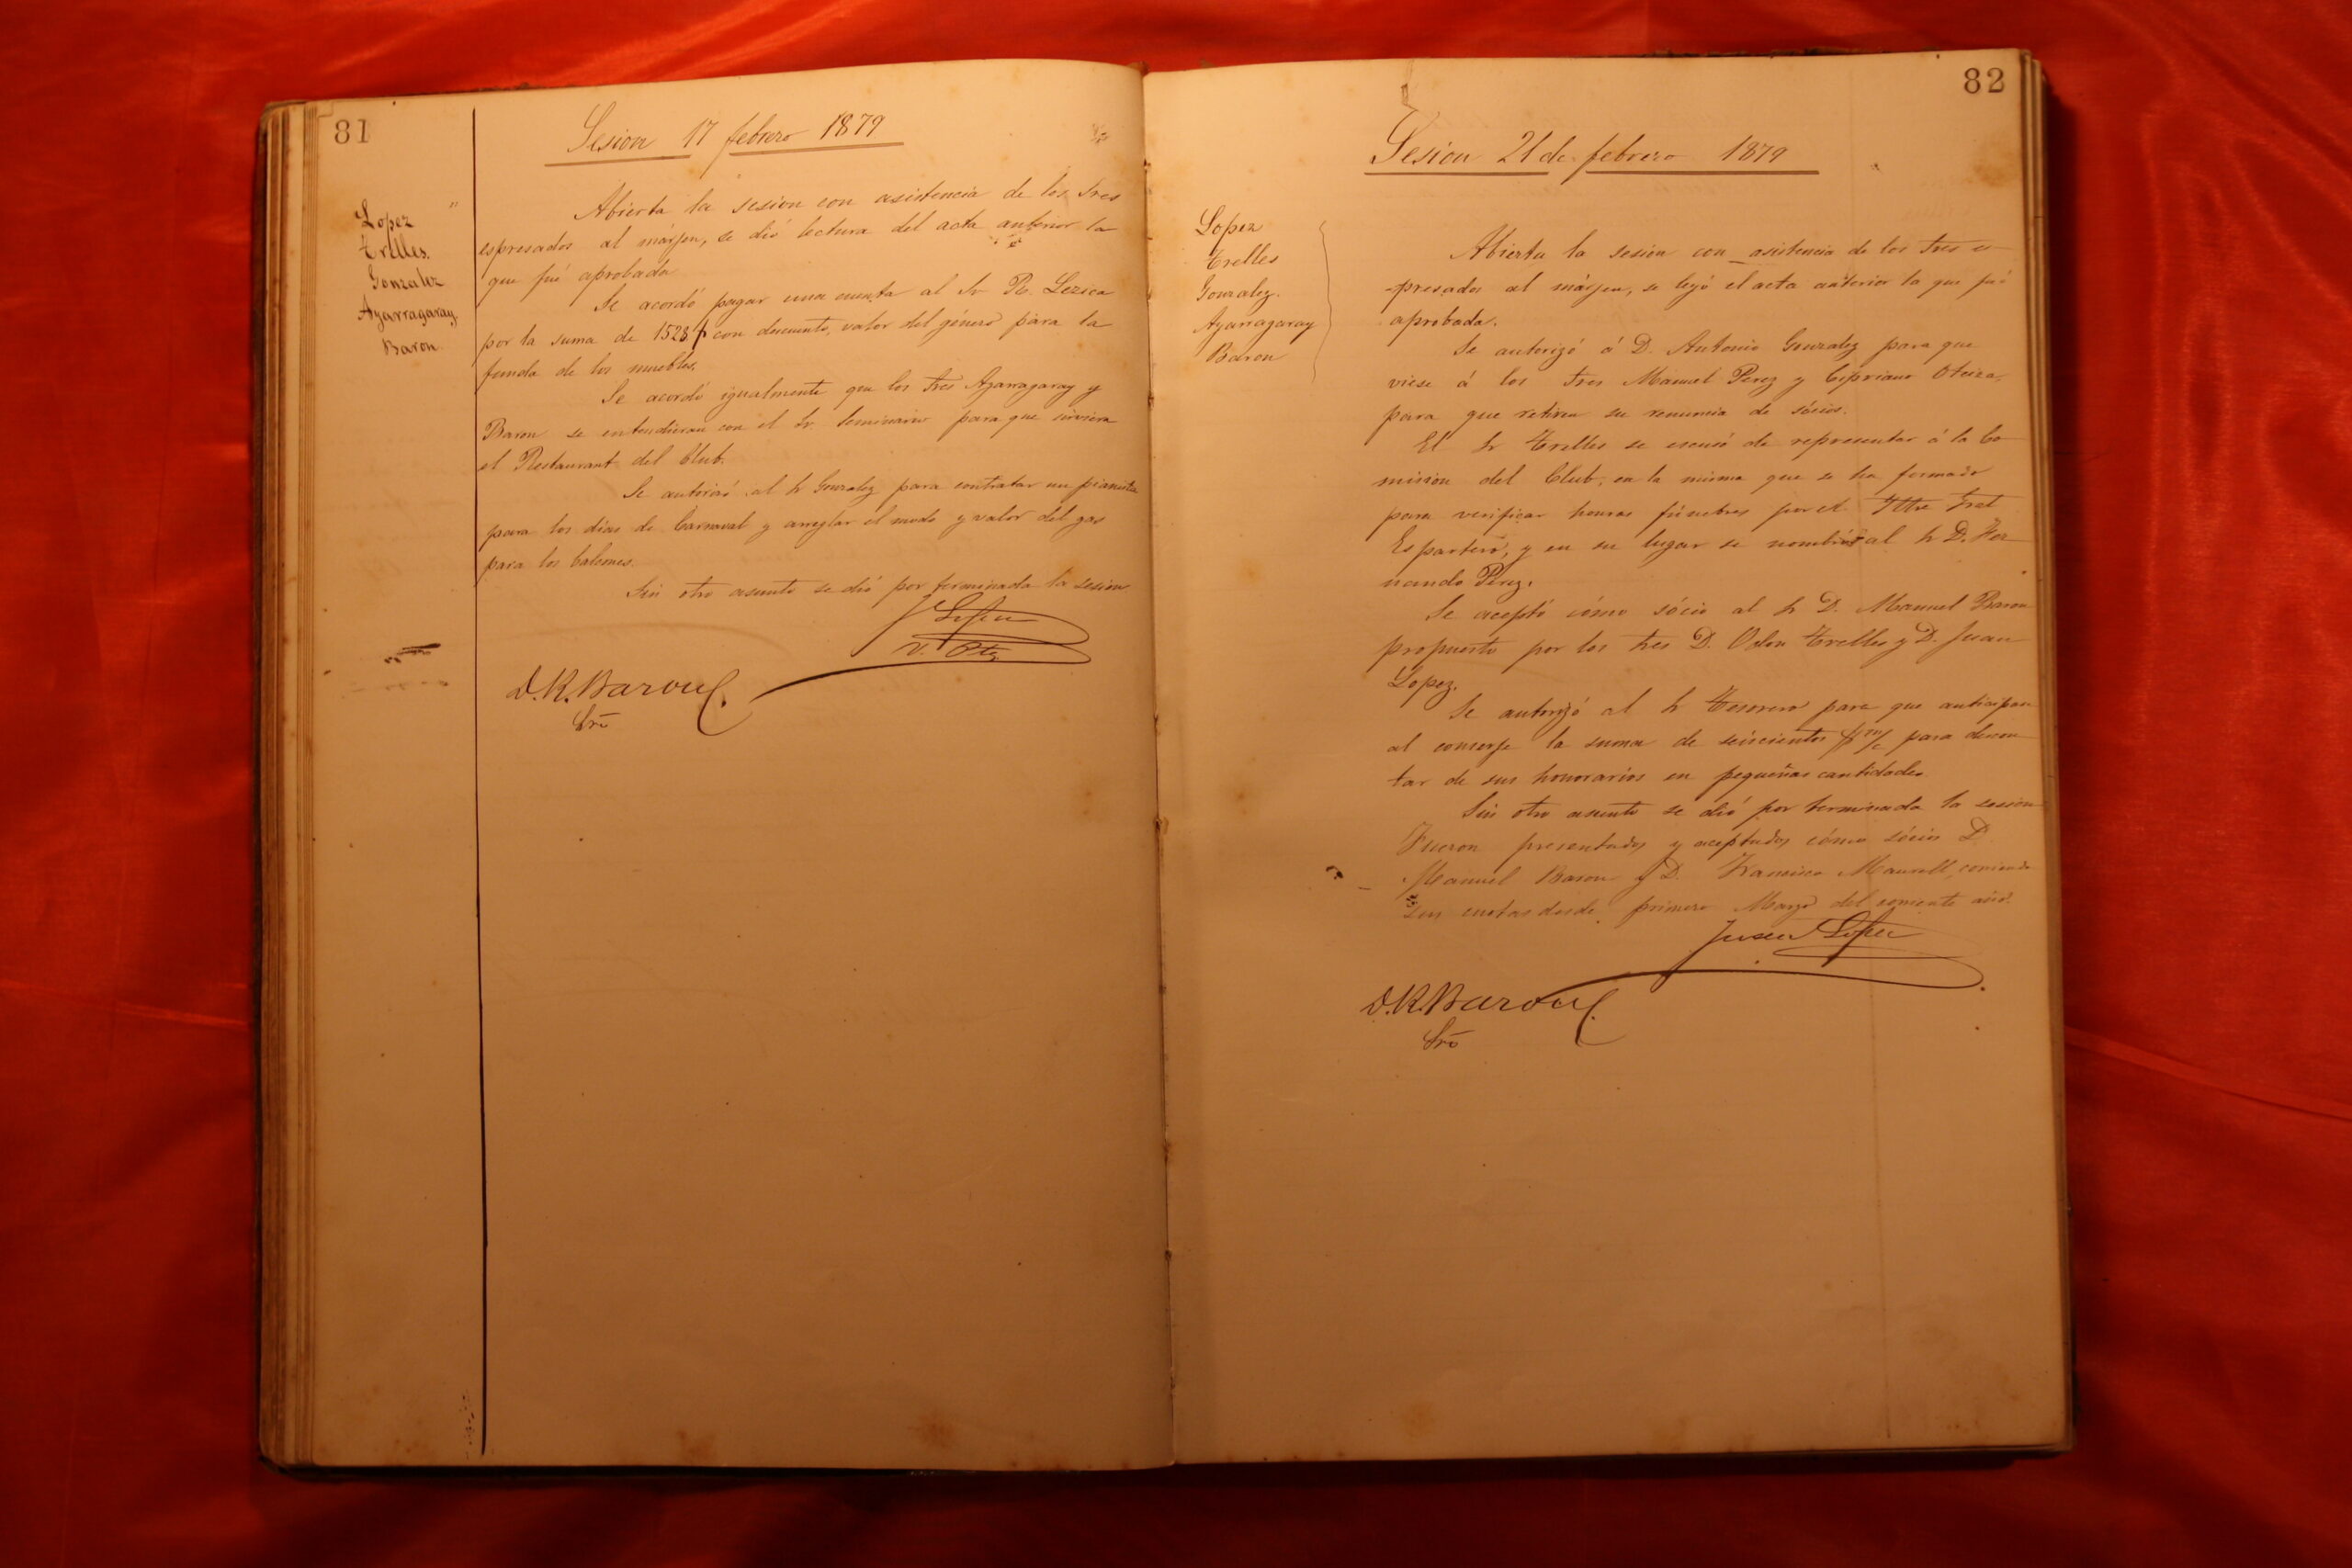 81
Sesion 17 febrero 1879
Lopez
Trelles.
Gonzalez
Ayarragaray
Baron
Abierta la sesion con asistencia de los Sres
espresados al márjen, se dió lectura del acta anterior la
que fué aprobada
Se acordó pagar una cuenta al Sr R. Lezica
por la suma de 1528 $ con descuento, valor del género para la
funda de los muebles.
Se acordó igualmente que los Sres Ayarragaray y
Baron se entendieran con el Sr. Seminario para que sirviera
el Restaurant del Club.
Se autorizó al Sr Gonzalez para contratar un pianista
para los dias de Carnaval y arreglar el modo y valor del gas
para los balcones.
Sin otro asunto se dió por terminada la sesion
J Lopez
D.R. Baron
Srio
82
Sesion 21 de febrero 1879
Lopez
Trelles
Gonzalez.
Ayarragaray
Baron
Abierta la sesion con asistencia de los Sres es-
presados al márjen, se leyó el acta anterior la que fué
aprobada.
Se autorizó á D. Antonio Gonzalez para que
viese á los Sres Manuel Perez y Cipriano Oteiza,
para que retiren su renuncia de sócios.
El Sr Trelles se escusó de representar á la Co
mision del Club, en la misma que se ha formado
para verificar honras fúnebres por el Iltre Gral
Espartero, y en su lugar se nombró al Sr D. Fer
nando Perez.
Se aceptó cómo sócio al Sr D. Manuel Baron
propuesto por los Sres D. Odon Trelles y D. Juan
Lopez.
Se autorizó al Sr Tesorero para que anticipara
al conserje la suma de seiscientos $ m/c para descon
tar de sus honorarios en pequeñas cantidades
Sin otro asunto se dió por terminada la sesion
Fueron presentados y aceptados cómo sócios D.
Manuel Baron y D. Francisco
sus cuotas desde primero Marzo del corriente año.
Juan Lopez
D.R. Baron
Srio